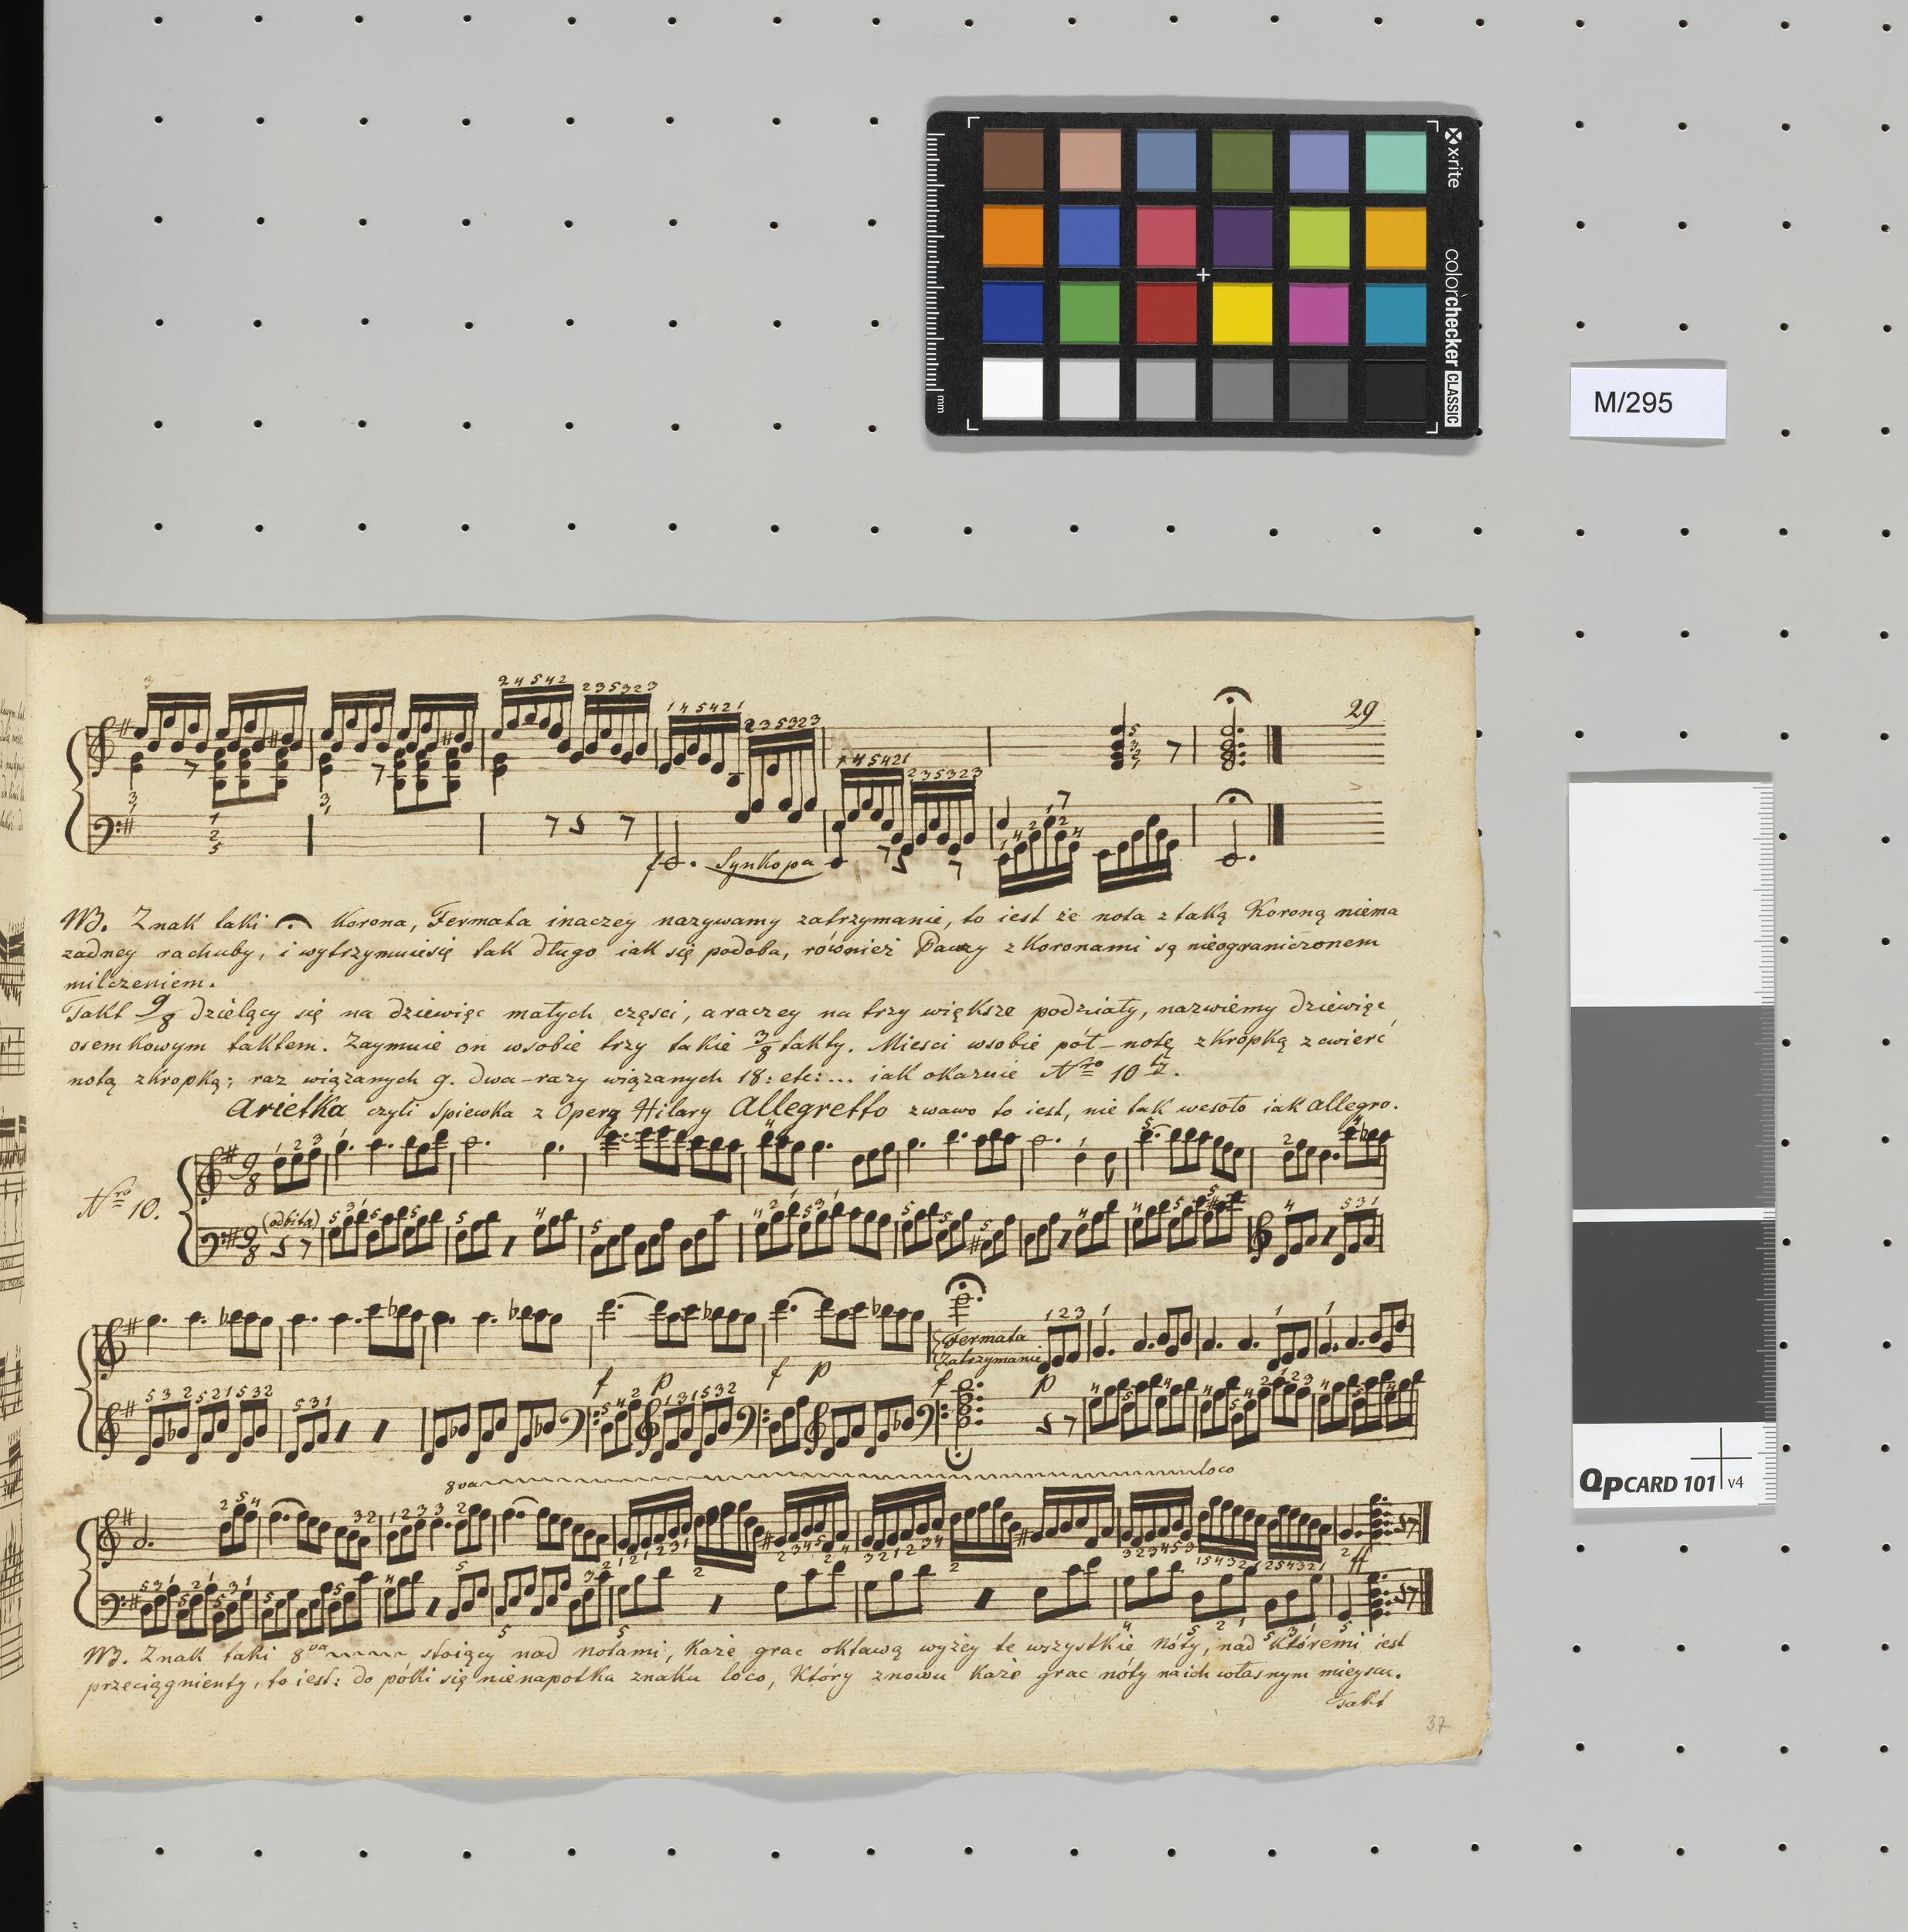 x-rite
colorchecker CLASSIC
mm
M/295
29
Synkopa
NB. Znak taki Korona, Fermata inaczey nazywamy zatrzymanie, to iest że nota z taką Koroną niema
zadney rachuby, i wytrzymuiesię tak długo iak się podoba, również Pauzy z Koronami są nieograniczonem
milczeniem.
Takt 9/8 dzielący się na dziewięc małych częsci, araczey na trzy większe podziały, nazwiemy dziewięc
osemkowym taktem. Zaymuie on wsobie trzy takie 3/8 takty. Miesci wsobie pół-notę zkropką zcwierć
notą zkropką; raz wiązanych 9. dwa-razy wiązanych 18: etc:... iak okazuie Nro 10 ty.
Arietka czyli spiewka z Operą Hilary Allegretto zwawo to iest, nie tak wesoło iak allegro.
Nro 10.
(odbita)
f p f p
Fermata
Zatrzymanie
f p
8va loco
ff
NB. Znak taki 8va stoiący nad notami, Każe grac oktawą wyżey te wszystkie Nóty, nad któremi iest
przeciągnienty, to iest: do póki się nienapotka znaku loco, Który znowu Każe grac nóty na ich własnym mieyscu.
Takt
37
QpCARD 101 v4